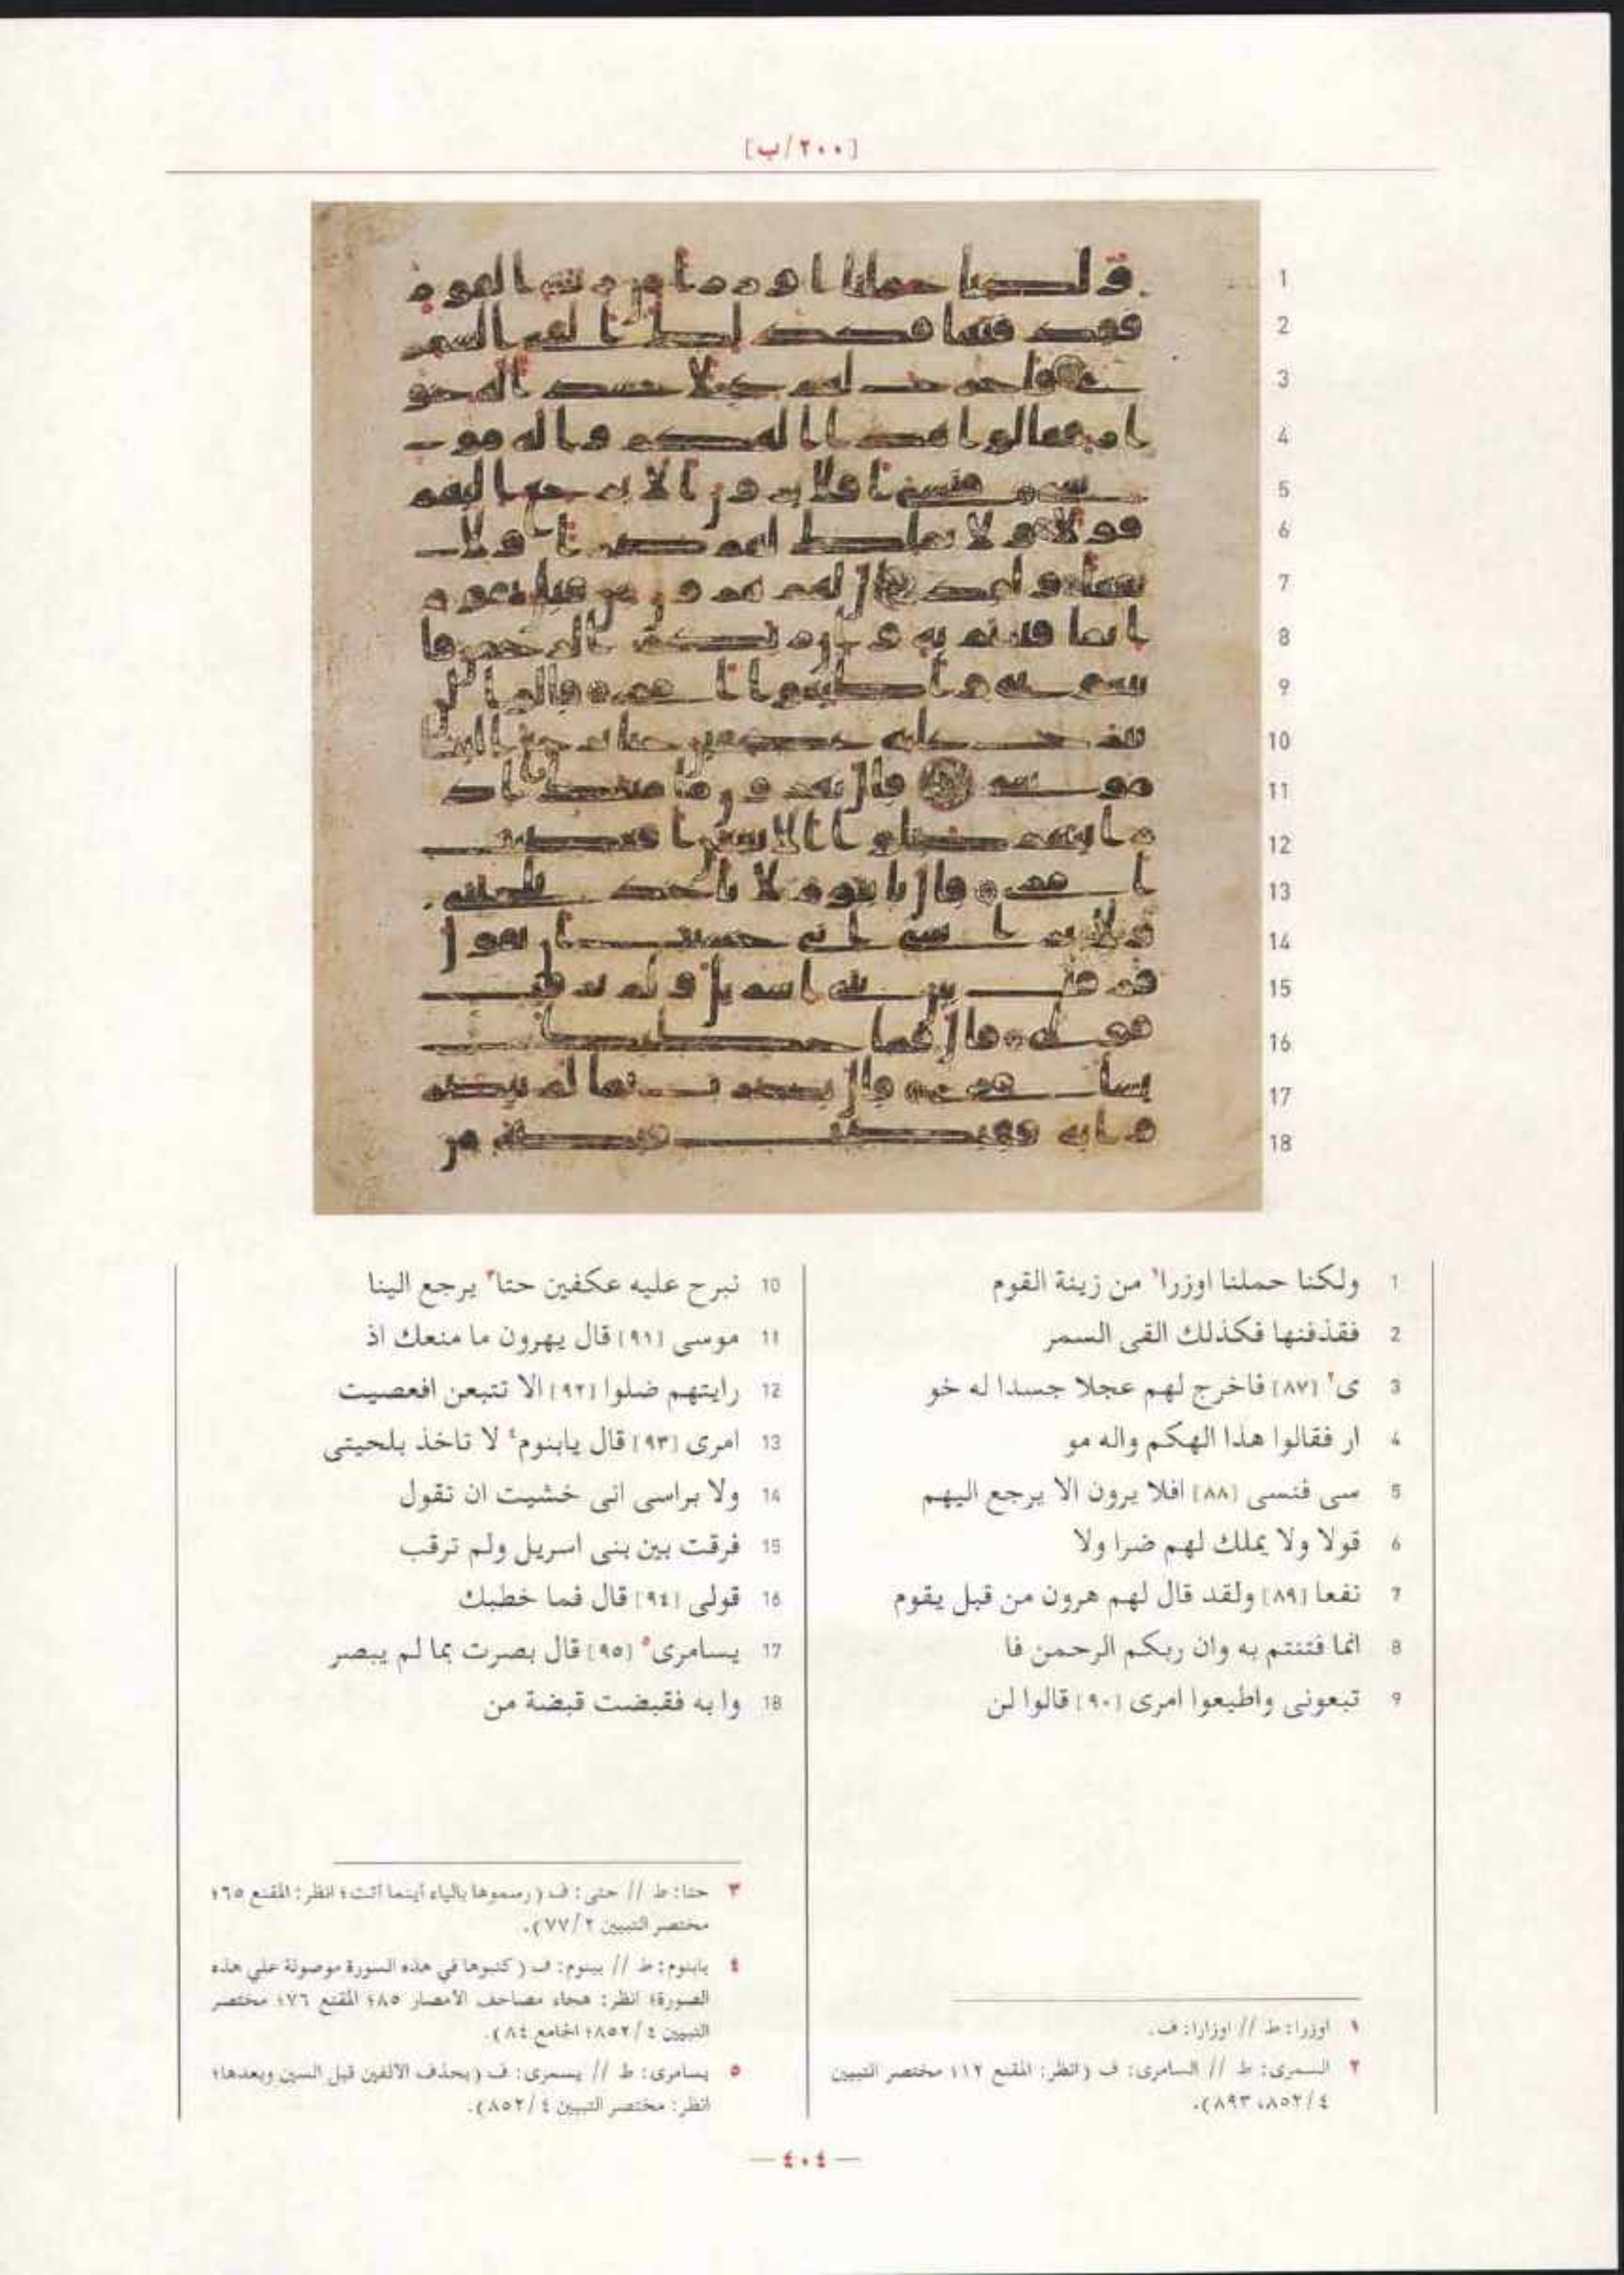 [٢٠٠/ب]
1 ولكنا حملنا اوزرا١ من زينة القوم
2 فقذفنها فكذلك القى السمر
3 ى٢ [٨٧] فاخرج لهم عجلا جسدا له خو
4 ار فقالوا هذا الهكم واله مو
5 سى فنسى [٨٨] افلا يرون الا يرجع اليهم
6 قولا ولا يملك لهم ضرا ولا
7 نفعا [٨٩] ولقد قال لهم هرون من قبل يقوم
8 انما فتنتم به وان ربكم الرحمن فا
9 تبعونى واطيعوا امرى [٩٠] قالوا لن
١ اوزرا: ط // اوزارا: ف.
٢ السمرى: ط // السامرى: ف (انظر: المقنع ١١٢ مختصر التبيين
٤/ ٨٥٢، ٨٩٣).
10 نبرح عليه عكفين حتا٣ يرجع الينا
11 موسى [٩١] قال يهرون ما منعك اذ
12 رايتهم ضلوا [٩٢] الا تتبعن افعصيت
13 امرى [٩٣] قال يابنوم٤ لا تاخذ بلحيتى
14 ولا براسى انى خشيت ان تقول
15 فرقت بين بنى اسريل ولم ترقب
16 قولى [٩٤] قال فما خطبك
17 يسامرى٥ [٩٥] قال بصرت بما لم يبصر
18 وا به فقبضت قبضة من
٣ حتا: ط // حتى: ف (رسموها بالياء أينما أتت؛ انظر: المقنع ٦٥؛
مختصر التبيين ٢/ ٧٧).
٤ يابنوم: ط // يبنوم: ف (كتبوها في هذه السورة موصولة على هذه
الصورة؛ انظر: هجاء مصاحف الأمصار ٨٥؛ المقنع ٧٦؛ مختصر
التبيين ٤/ ٨٥٢؛ الجامع ٨٤).
٥ يسامرى: ط // يسمرى: ف (بحذف الألفين قبل السين وبعدها؛
انظر: مختصر التبيين ٤/ ٨٥٢).
— ٤٠٤ —